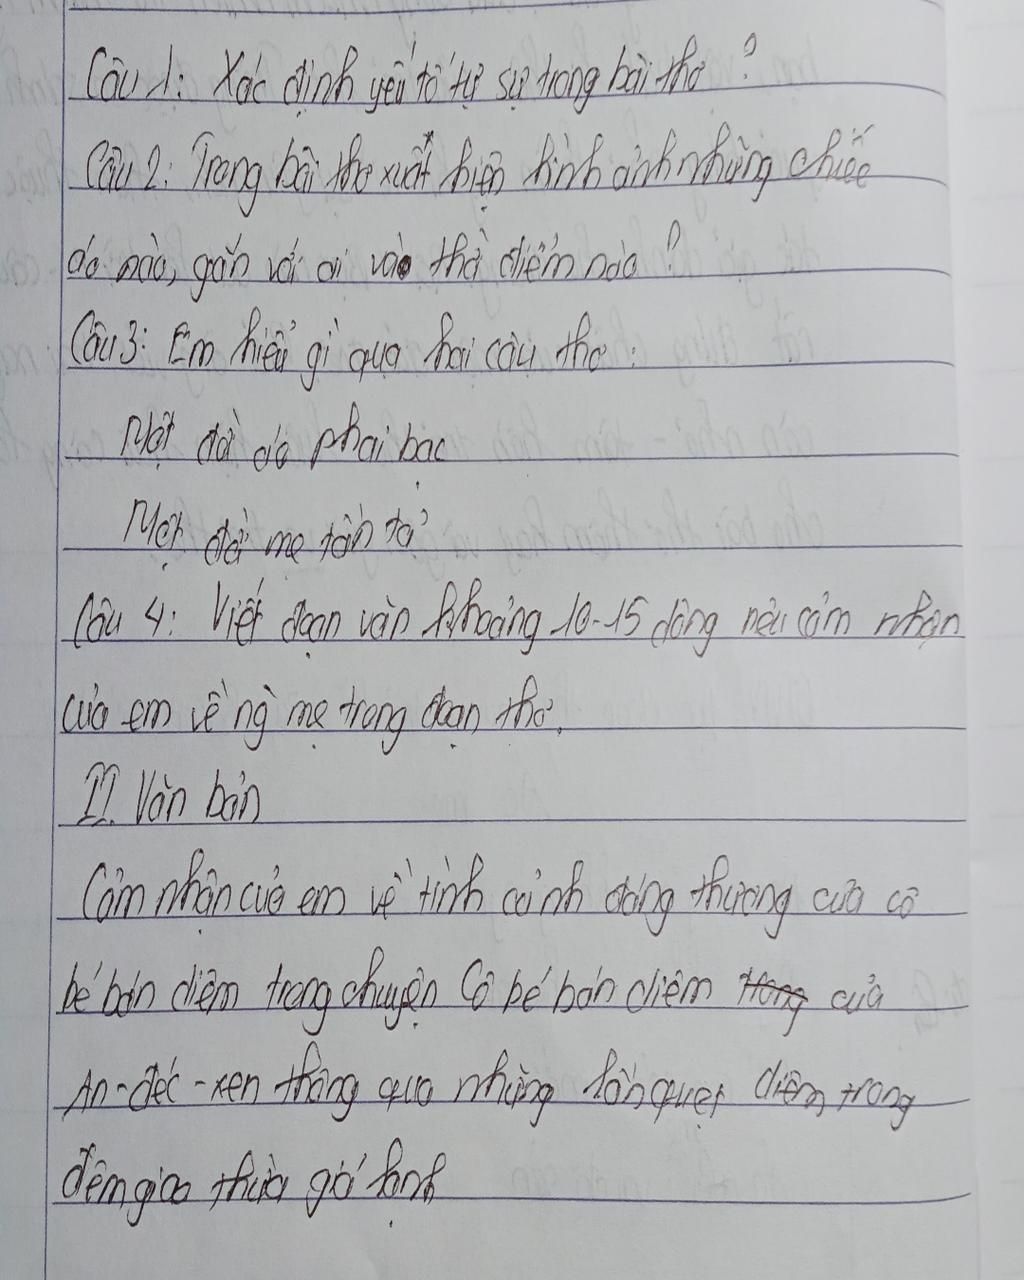 Câu 1: Xác định yếu tố tự sự trong bài thơ?
Câu 2: Trong bài thơ xuất hiện hình ảnh những chiếc
áo nào, gắn với ai vào thời điểm nào?
Câu 3: Em hiểu gì qua hai câu thơ:
Một đời áo phai bạc
Một đời mẹ tần tảo
Câu 4: Viết đoạn văn khoảng 10-15 dòng nêu cảm nhận
của em về ng mẹ trong đoạn thơ.
II. Văn bản
Cảm nhận của em về tình cảnh đáng thương của cô
bé bán diêm trong chuyện Cô bé bán diêm của
An-đéc-xen thông qua những lần quẹt diêm trong
đêm giao thừa giá lạnh